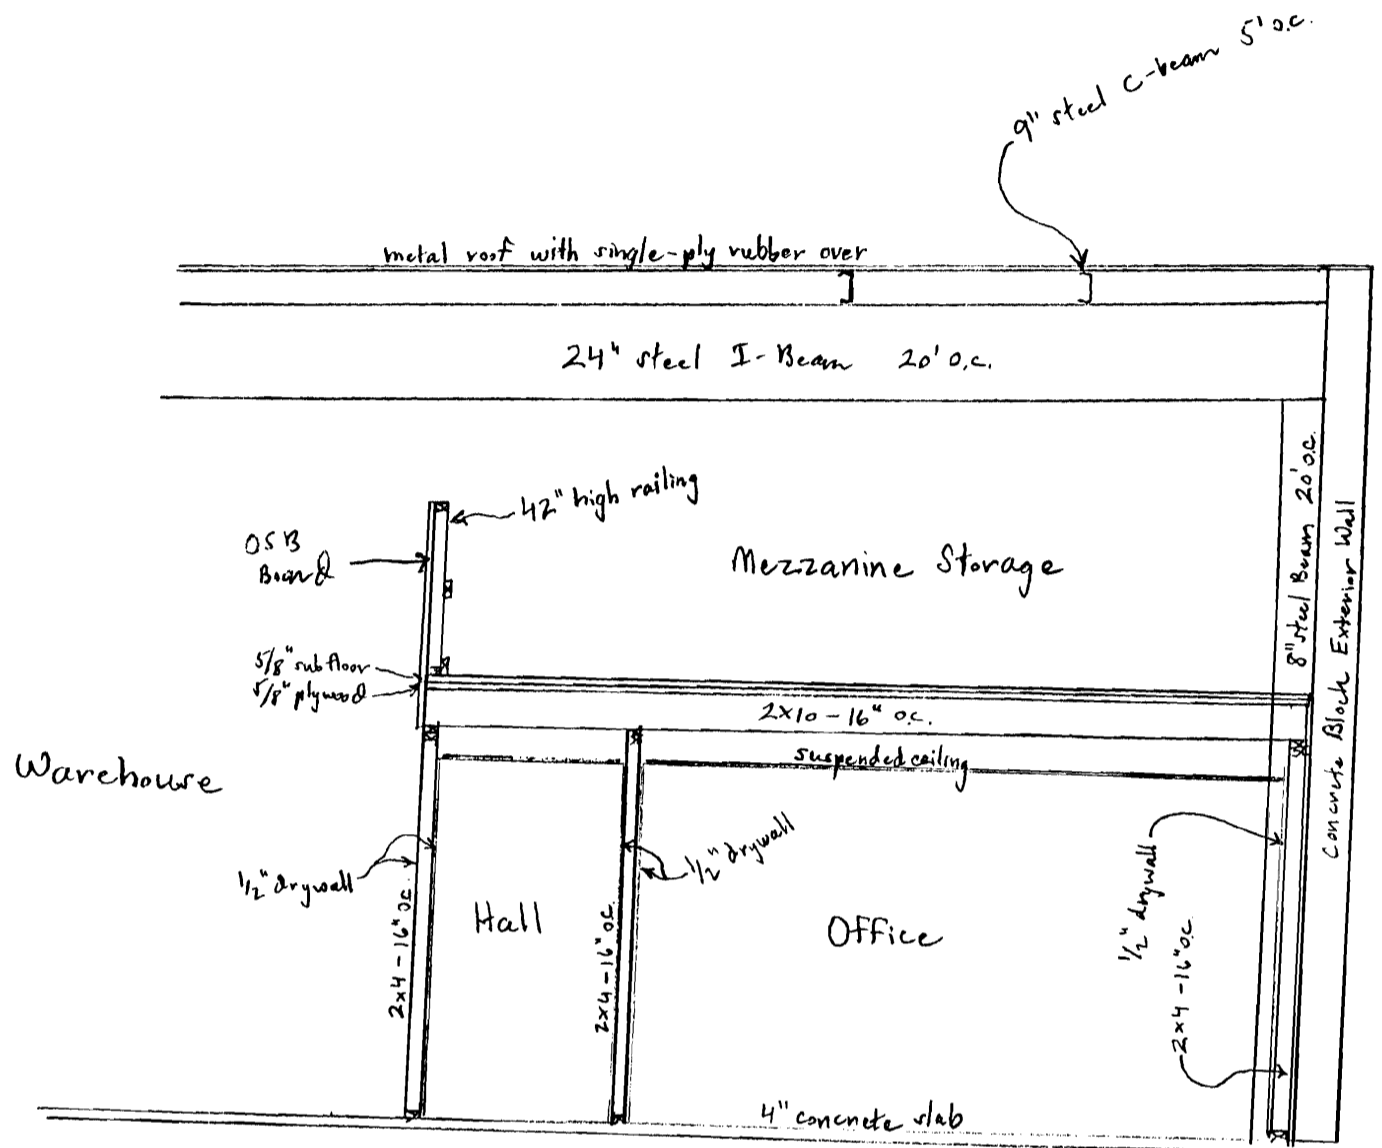 9" steel C-beam 5' o.c.
metal roof with single-ply rubber over
24" steel I-Beam 20' o.c.
42" high railing
OSB
Board
Mezzanine Storage
8" steel Beam 20' o.c.
Concrete Block Exterior Wall
5/8" subfloor
5/8" plywood
2x10-16" o.c.
suspended ceiling
Warehouse
1/2" drywall
1/2" drywall
1/2" drywall
Hall
Office
2x4-16" o.c.
2x4-16" o.c.
2x4-16" o.c.
4" concrete slab